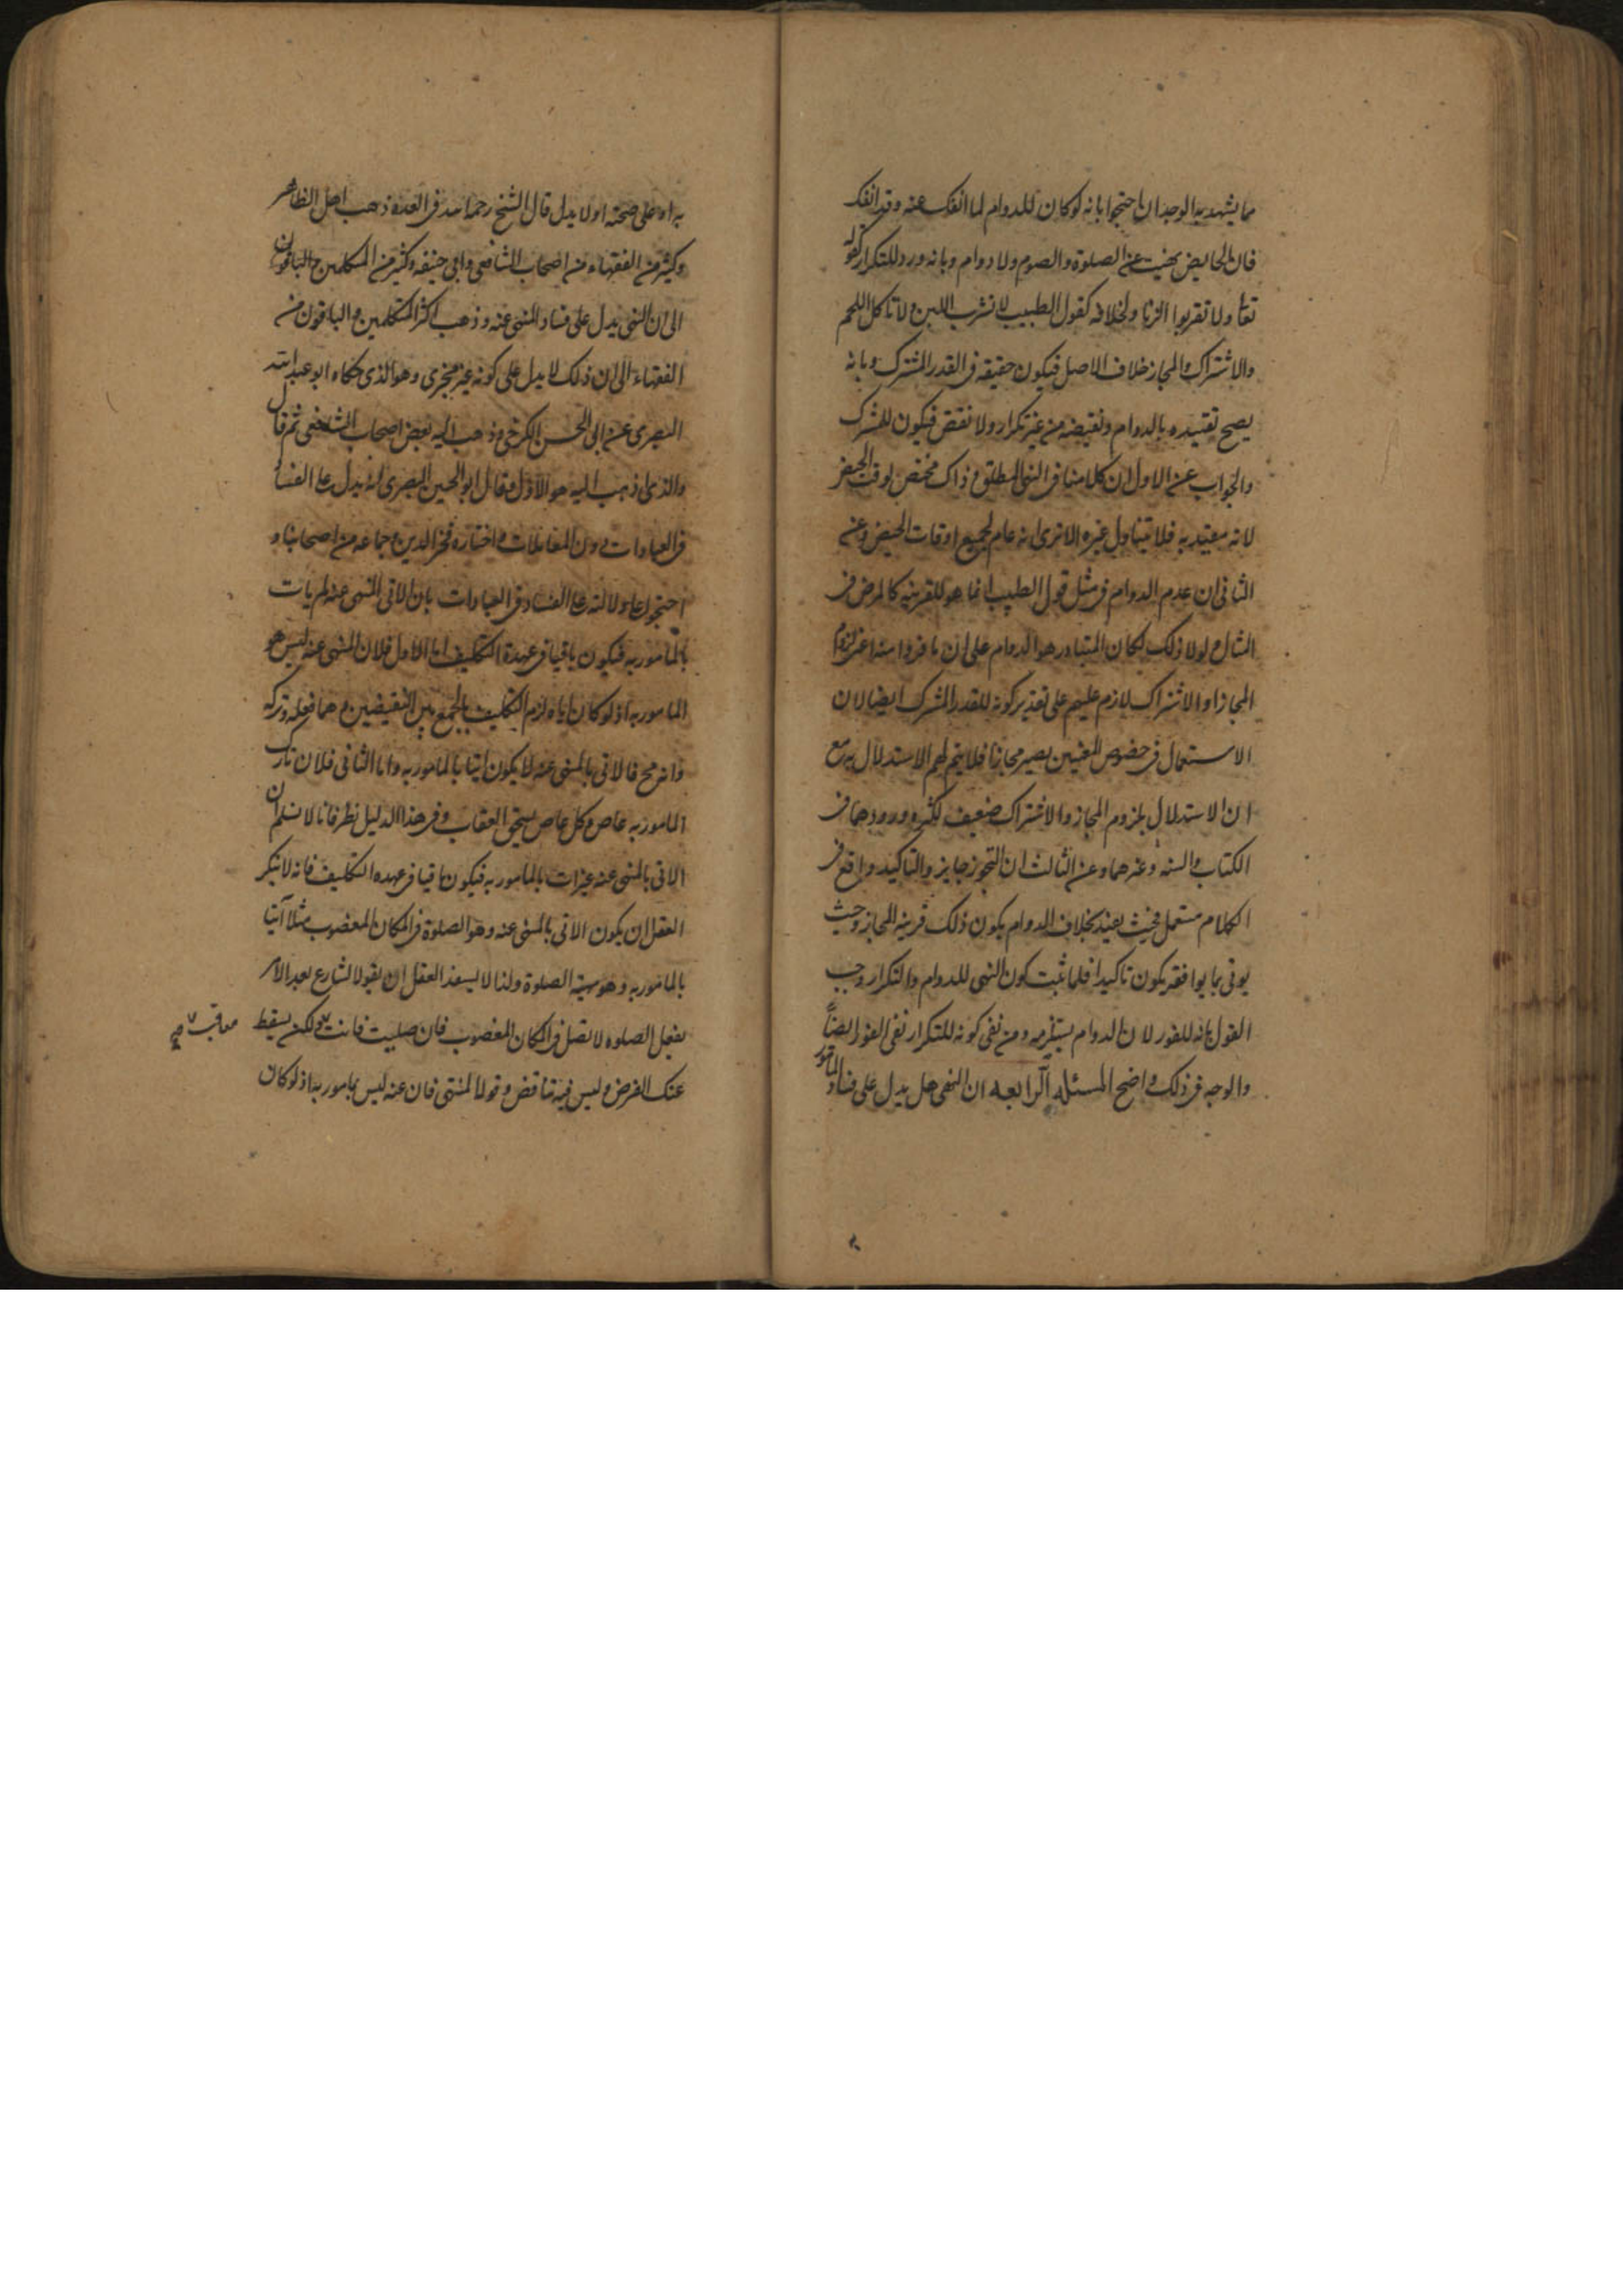 مما يشهد به الوجدان احتجوا بانه لو كان للدوام لما انفك عنه وقد انفك
فان الحايض نهيت عن الصلوة والصوم ولا دوام وبانه ورد للتكرار كقوله
تعا ولا تقربوا الزنا ولخلافه كقول الطبيب لا تشرب اللبن ولا تاكل اللحم
والاشتراك والمجاز خلاف الاصل فيكون حقيقه في القدر المشترك وبانه
يصح تقييده بالدوام ونقيضه من غير تكرار ولا نقض فيكون للمشترك
والجواب عن الاول ان كلامنا في النهى المطلق وذاك مختص بوقت الحيض
لانه مقيد به فلا يتناول غيره الا ترى انه عام لجميع اوقات الحيض وعن
الثانى ان عدم الدوام في مثل قول الطبيب انما هو للقرينه كالمرض في
المثال ولولا ذلك لكان المتبادر هو الدوام على ان ما فروا منه اعنى لزوم
المجاز او الاشتراك لازم عليهم على تقدير كونه للقدر المشترك ايضا لان
الاستعمال في خصوص المعنيين يصير مجازا فلا يتم لهم الاستدلال به مع
ان الاستدلال بلزوم المجاز والاشتراك ضعيف لكثره ورودهما في
الكتاب والسنه وغيرهما وعن الثالث ان التجوز جايز والتاكيد واقع في
الكلام مستعمل فحيث يقيد بخلاف الدوام يكون ذلك قرينه المجاز وحيث
يوتى بما يوافقه يكون تاكيدا فلما ثبت كون النهى للدوام والتكرار وجب
القول بانه للفور لان الدوام يستلزمه ومن نفى كونه للتكرار نفى الفور ايضاً
والوجه في ذلك واضح المسئله الرابعه ان النهى هل يدل على فساد المأمور
به او على صحته اولا يدل قال الشيخ رحمه الله في العده ذهب اهل الظاهر
وكثير من الفقهاء من اصحاب الشافعى وابى حنيفه وكثير من المتكلمين والباقون
الى ان النهى يدل على فساد المنهى عنه وذهب اكثر المتكلمين والباقون من
الفقهاء الى ان ذلك لا يدل على كونه غير مجزى وهو الذى حكاه ابو عبد الله
البصرى عن ابى الحسن الكرخى وذهب اليه بعض اصحاب الشافعى ثم قال
والذى ذهب اليه هو الاول وقال ابو الحسين البصرى انه يدل على الفساد
في العبادات دون المعاملات واختاره فخر الدين وجماعه من اصحابنا و
احتجوا على دلالته على الفساد في العبادات بان الاتى بالمنهى عنه لم يات
بالمأمور به فيكون باقيا في عهدة التكليف اما الاول فلان المنهى عنه ليس هو
المامور به اذ لو كان اياه لزم التكليف بالجمع بين النقيضين وهما فعله وتركه
وانه مح فالاتى بالمنهى عنه لا يكون آتيا بالمامور به واما الثانى فلان تارك
المامور به عاص وكل عاص يستحق العقاب وفي هذا الدليل نظر فانا لا نسلم ان
الاتى بالمنهى عنه غير ات بالمامور به فيكون باقيا في عهده التكليف فانه لا ينكر
العقل ان يكون الاتى بالمنهى عنه وهو الصلوة في المكان المغضوب مثلا آتيا
بالمامور به وهو مهية الصلوة ولذا لا يستبعد العقل ان يقول الشارع بعد الامر
بفعل الصلوه لا تصل في المكان المغصوب فان صليت فانت ولكن يسقط
معاقب صح
عنك الفرض وليس فيه تناقض وقولا لمنتهى فان عنه ليس بمامور به اذ لو كان